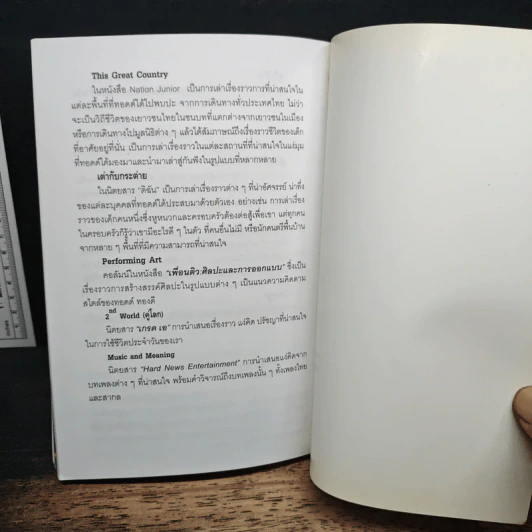 This Great Country
ในหนังสือ Nation Junior เป็นการเล่าเรื่องราวการที่น่าสนใจใน
แต่ละพื้นที่ที่ทอดด์ได้ไปพบปะ จากการเดินทางทั่วประเทศไทย ไม่ว่า
จะเป็นวิถีชีวิตของเยาวชนไทยในชนบทที่แตกต่างจากเยาวชนในเมือง
หรือการเดินทางไปมูลนิธิต่าง ๆ แล้วได้สัมภาษณ์ถึงเรื่องราวชีวิตของเด็ก
ที่อาศัยอยู่ที่นั่น เป็นการเล่าเรื่องราวในแต่ละสถานที่ที่น่าสนใจในแง่มุม
ที่ทอดด์ได้มองมาและนำมาเล่าสู่กันฟังในรูปแบบที่หลากหลาย
เต่ากับกระต่าย
ในนิตยสาร "ดิฉัน" เป็นการเล่าเรื่องราวต่าง ๆ ที่น่าอัศจรรย์ น่าทึ่ง
ของแต่ละบุคคลที่ทอดด์ได้ประสบมาด้วยตัวเอง อย่างเช่น การเล่าเรื่อง
ราวของเด็กคนหนึ่งซึ่งหูหนวกและครอบครัวต้องต่อสู้เพื่อเขา แต่ทุกคน
ในครอบครัวก็รู้ว่าเขามีอะไรดี ๆ ในตัว ที่คนอื่นไม่มี หรือนักดนตรีพื้นบ้าน
จากหลาย ๆ พื้นที่ที่มีความสามารถที่น่าสนใจ
Performing Art
คอลัมน์ในหนังสือ "เพื่อนติว:ศิลปะและการออกแบบ" ซึ่งเป็น
เรื่องราวการสร้างสรรค์ศิลปะในรูปแบบต่าง ๆ เป็นแนวความคิดตาม
สไตล์ของทอดด์ ทองดี
2nd World (ดูโลก)
นิตยสาร "เกรด เอ" การนำเสนอเรื่องราว แง่คิด ปรัชญาที่น่าสนใจ
ในการใช้ชีวิตประจำวันของเรา
Music and Meaning
นิตยสาร "Hard News Entertainment" การนำเสนอแง่คิดจาก
บทเพลงต่าง ๆ ที่น่าสนใจ พร้อมคำวิจารณ์ถึงบทเพลงนั้น ๆ ทั้งเพลงไทย
และสากล